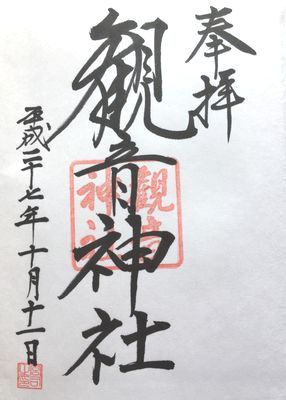 奉拝
観音神社
観音神社
平成二十七年十月十一日